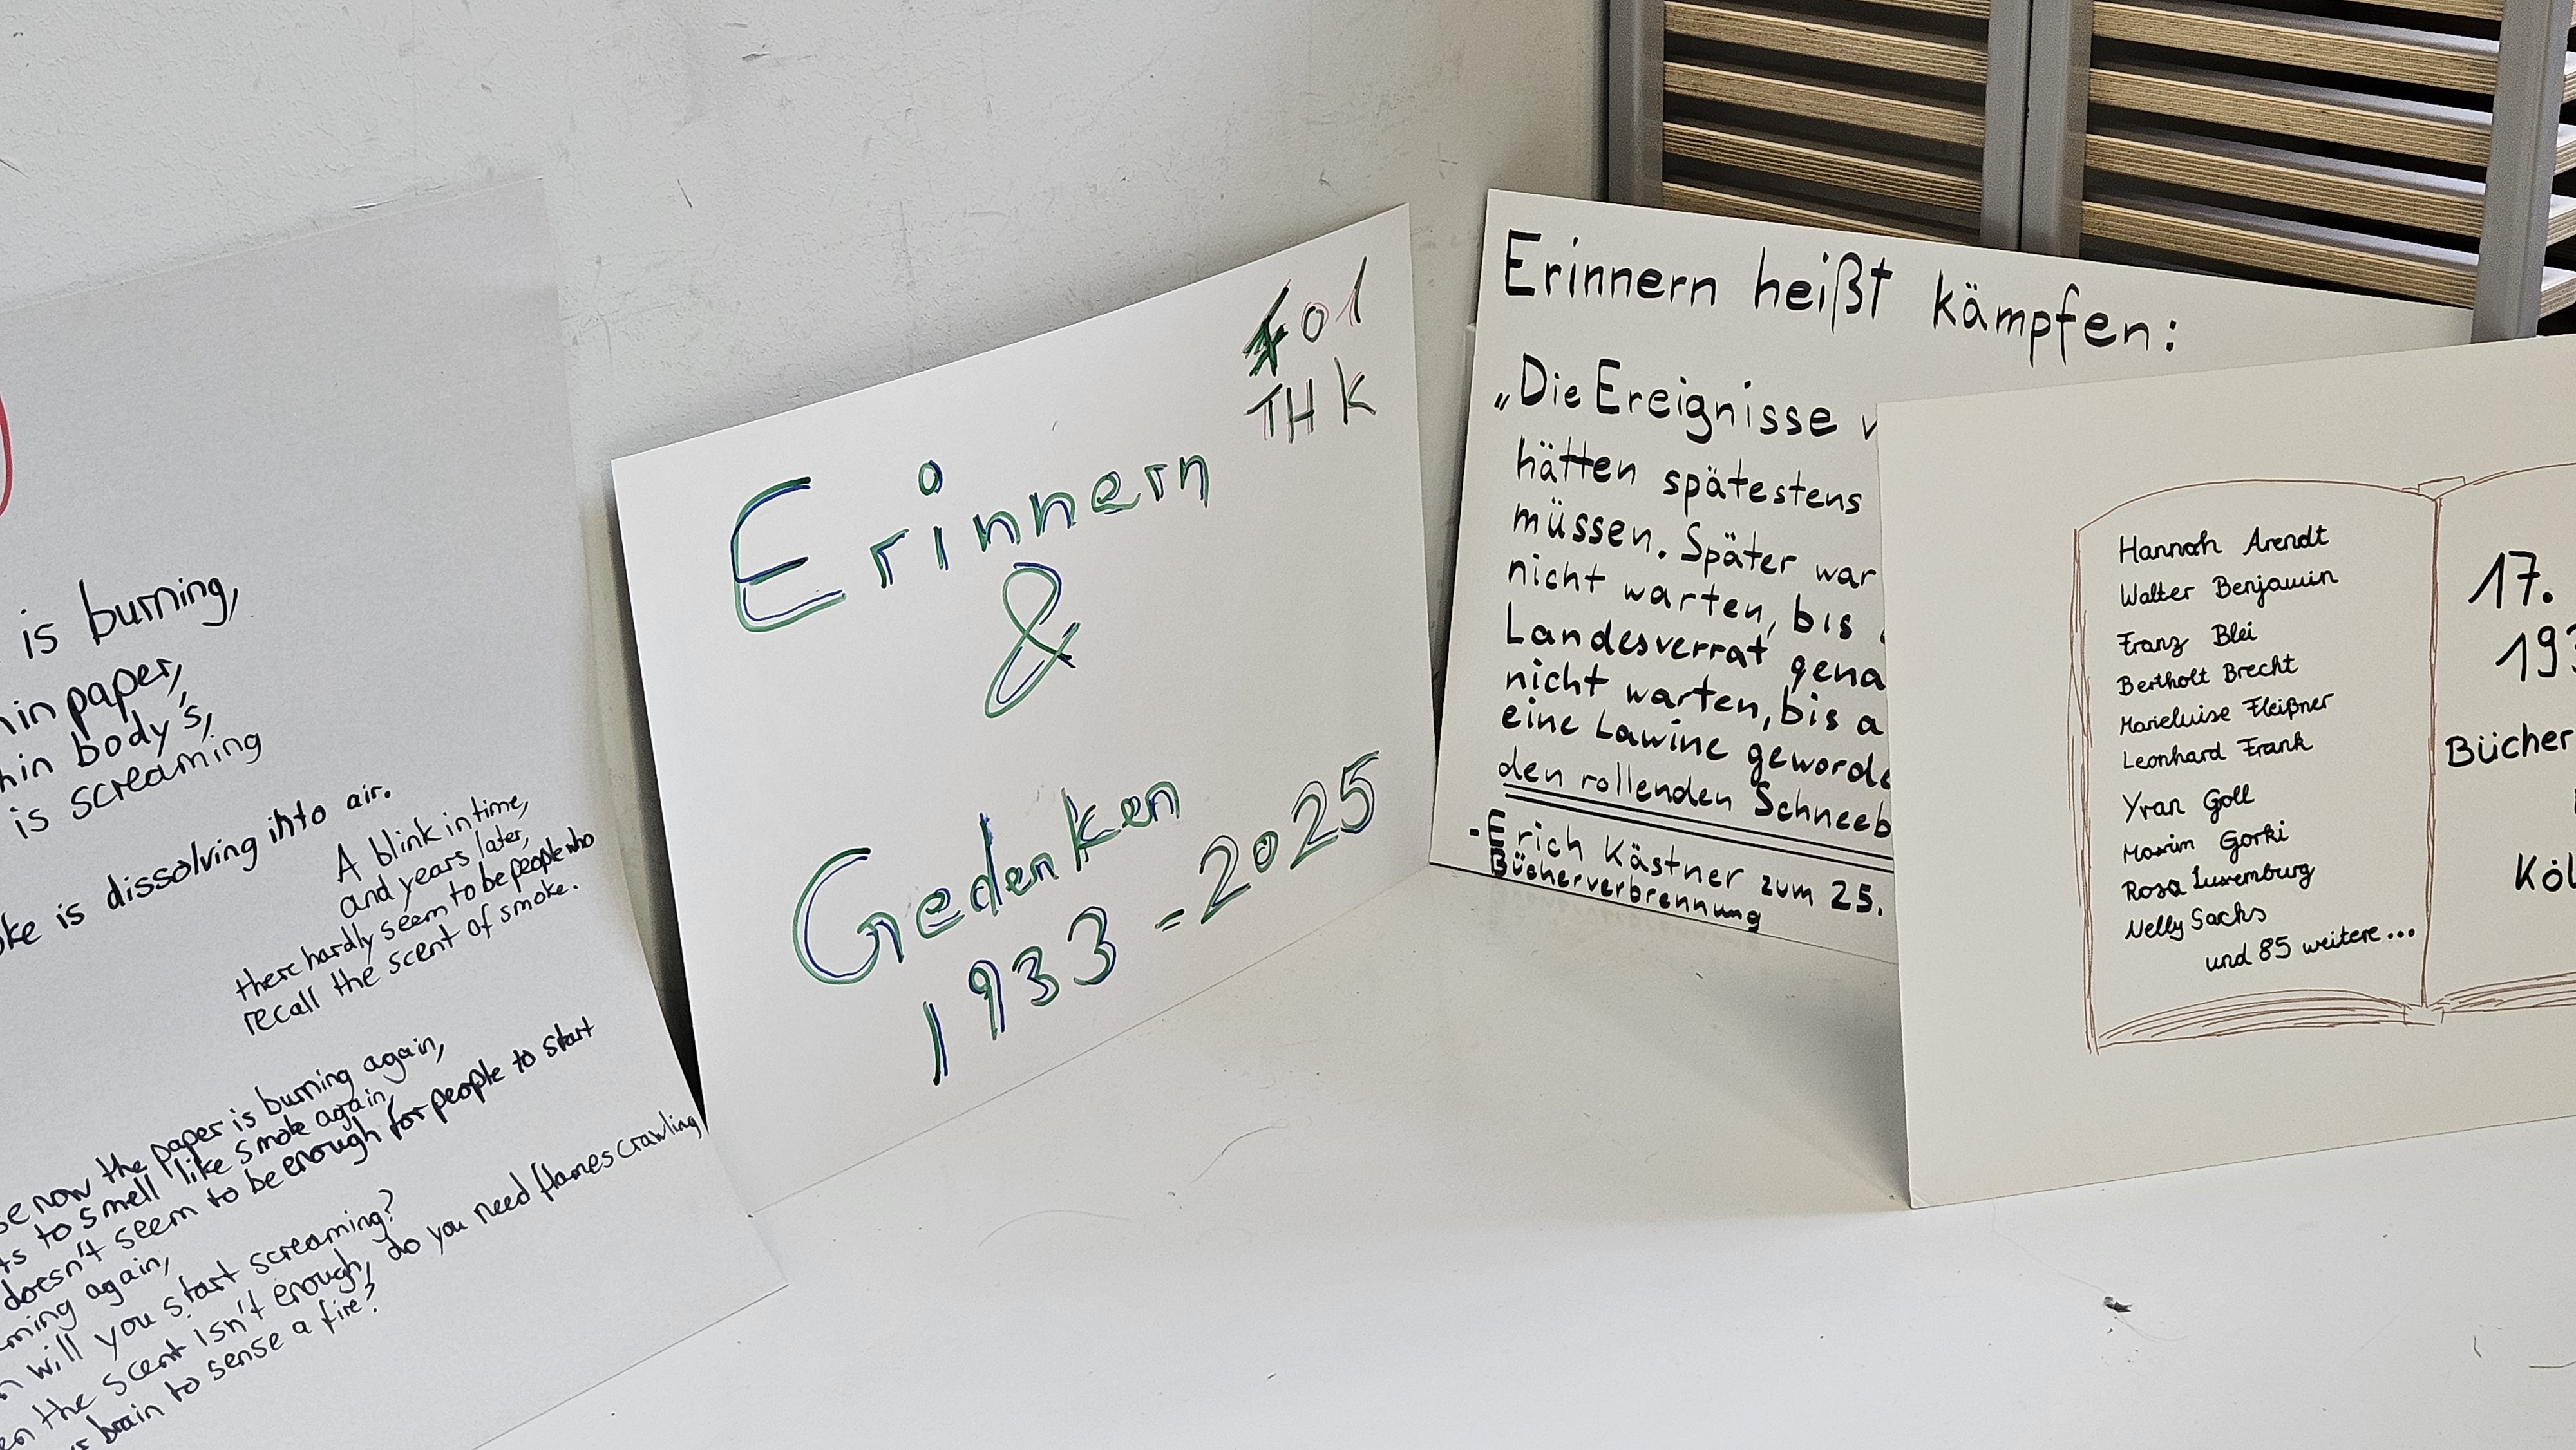 is burning,
in paper,
hin body's,
is screaming
ke is dissolving into air.
A blink in time,
and years later,
there hardly seem to be people who
recall the scent of smoke.
se now the paper is burning again,
ts to smell like smoke again,
doesn't seem to be enough for people to start
ming again,
will you start screaming?
en the scent isn't enough, do you need flames crawling
brain to sense a fire?
F01
THK
Erinnern
&
Gedenken
1933-2025
Erinnern heißt kämpfen:
„Die Ereignisse v
hätten spätestens
müssen. Später war
nicht warten, bis
Landesverrat gena
nicht warten, bis a
eine Lawine geworde
den rollenden Schneeb
- Erich Kästner zum 25.
Bücherverbrennung
Hannah Arendt
Walter Benjamin
Franz Blei
Bertholt Brecht
Marieluise Fleißner
Leonhard Frank
Yvan Goll
Maxim Gorki
Rosa Luxemburg
Nelly Sachs
und 85 weitere...
17.
193
Bücher
Köl